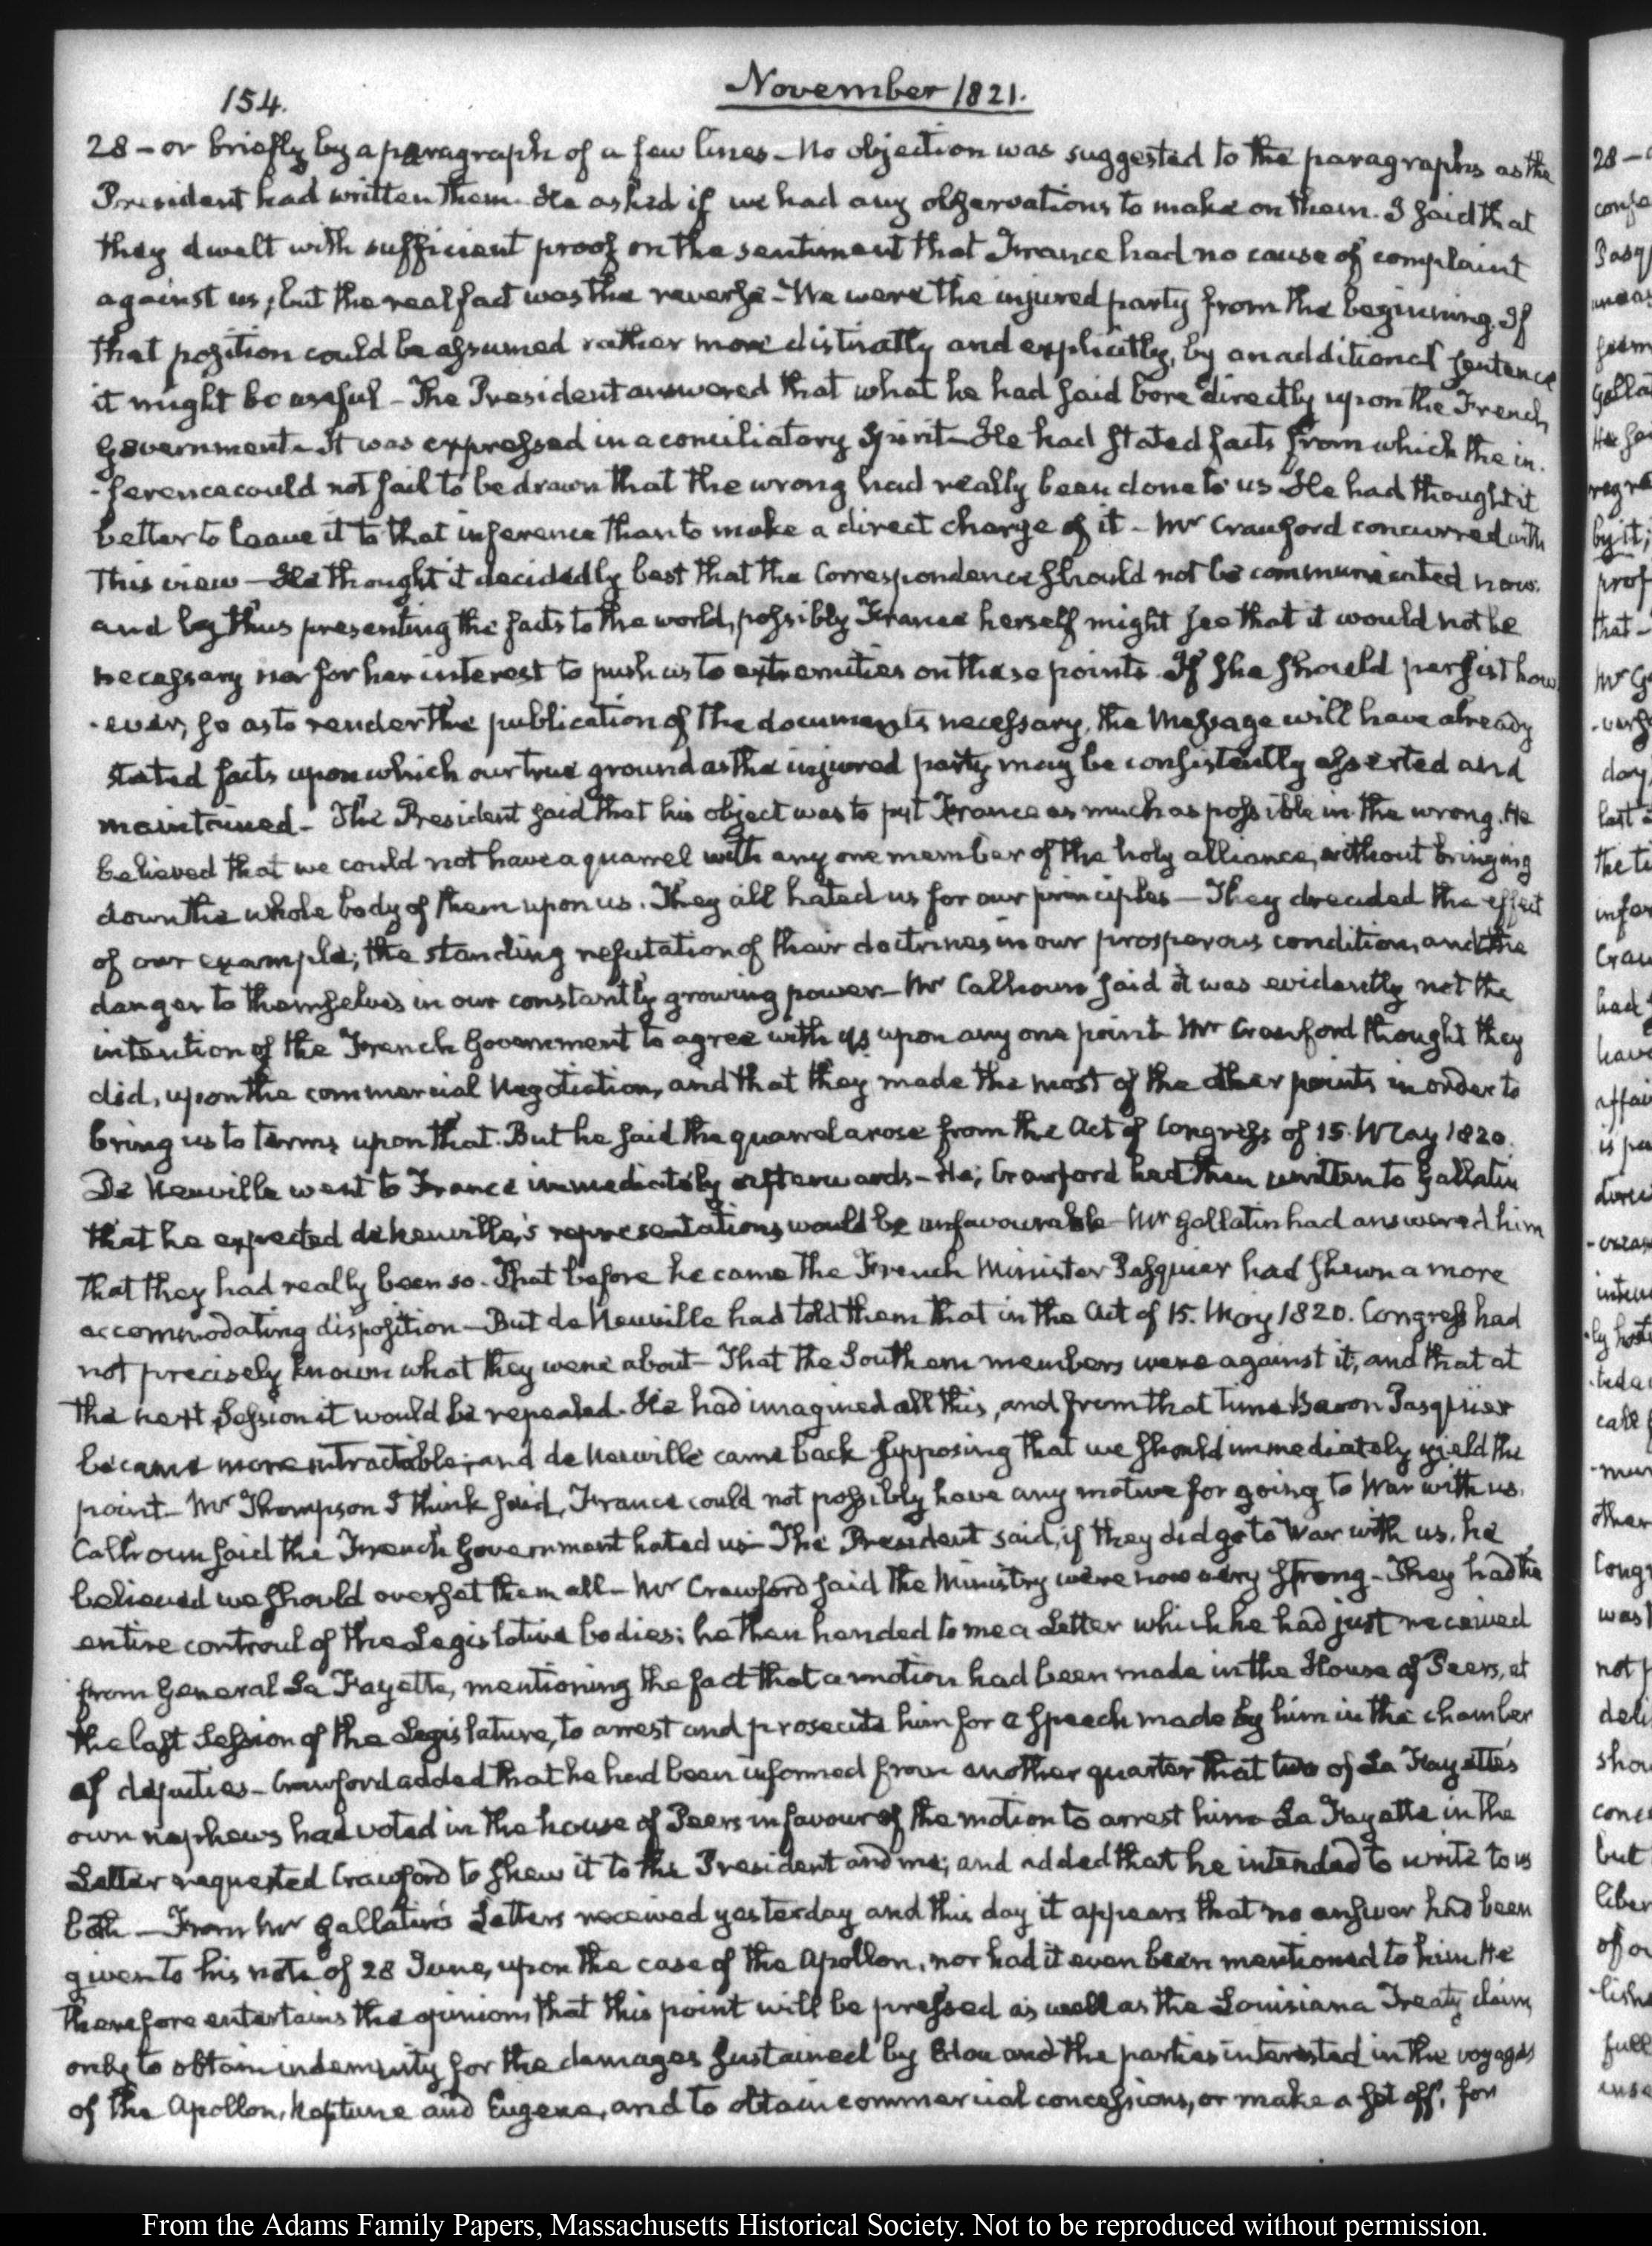 154.
November 1821.
28 - or briefly by a paragraph of a few lines - No objection was suggested to the paragraphs as the
President had written them. He asked if we had any observations to make on them. I said that
they dwelt with sufficient proof on the sentiment that France had no cause of complaint
against us; but the real fact was the reverse - We were the injured party from the beginning. If
that position could be assumed rather more distinctly and explicitly, by an additional sentence
it might be useful - The President answered that what he had said bore directly upon the French
Government. It was expressed in a conciliatory Spirit - He had stated facts from which the in-
-ference could not fail to be drawn that the wrong had really been done to us. He had thought it
better to leave it to that inference than to make a direct charge of it - Mr Crawford concurred with
this view - He thought it decidedly best that the Correspondence should not be communicated now.
and by thus presenting the facts to the world, possibly France herself might see that it would not be
necessary nor for her interest to push us to extremities on these points. If she should persist how
-ever, so as to render the publication of the documents necessary, the Message will have already
stated facts upon which our true ground as the injured party may be consistently asserted and
maintained - The President said that his object was to put France as much as possible in the wrong. He
believed that we could not have a quarrel with any one member of the holy alliance, without bringing
down the whole body of them upon us. They all hated us for our principles - They dreaded the effect
of our example; the standing refutation of their doctrines in our prosperous condition, and the
danger to themselves in our constantly growing power - Mr Calhoun said it was evidently not the
intention of the French Government to agree with us upon any one point. Mr Crawford thought they
did, upon the commercial Negotiation, and that they made the most of the other points in order to
bring us to terms upon that. But he said the quarrel arose from the Act of Congress of 15. May 1820.
De Neuville went to France immediately afterwards - He, Crawford had then written to Gallatin
that he expected de Neuville's representations would be unfavourable - Mr Gallatin had answered him
that they had really been so. That before he came the French Minister Pasquier had shewn a more
accommodating disposition - But de Neuville had told them that in the Act of 15. May 1820. Congress had
not precisely known what they were about - That the Southern members were against it, and that at
the next Session it would be repealed. He had imagined all this, and from that time Baron Pasquier
became more intractable; and de Neuville came back supposing that we should immediately yield the
point - Mr Thompson I think said, France could not possibly have any motive for going to War with us.
Calhoun said the French Government hated us - The President said, if they did go to War with us, he
believed we should overset them all - Mr Crawford said the Ministry were now very strong - They had the
entire controul of the Legislative bodies; he then handed to me a Letter which he had just received
from General La Fayette, mentioning the fact that a motion had been made in the House of Peers, at
the last Session of the Legislature, to arrest and prosecute him for a speech made by him in the chamber
of deputies - Crawford added that he had been informed from another quarter that two of La Fayette's
own nephews had voted in the house of Peers in favour of the motion to arrest him - La Fayette in the
Letter requested Crawford to shew it to the President and me; and added that he intended to write to us
both - From Mr Gallatin's Letters received yesterday and this day it appears that no answer had been
given to his note of 28 June, upon the case of the Apollon, nor had it even been mentioned to him. He
therefore entertains the opinion that this point will be pressed as well as the Louisiana Treaty claim,
only to obtain indemnity for the damages sustained by Edou and the parties interested in the voyages
of the Apollon, Neptune and Eugene, and to obtain commercial concessions, or make a set off, for
From the Adams Family Papers, Massachusetts Historical Society. Not to be reproduced without permission.